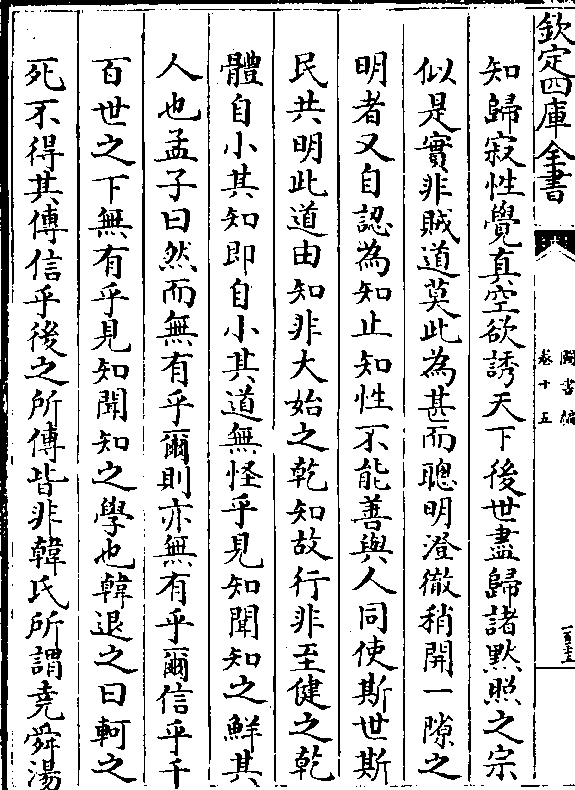 欽定四庫全書
圖書編
卷十五
知歸寂性覺真空欲誘天下後世盡歸諸默照之宗
似是實非賊道莫此為甚而聰明澄徹稍開一隙之
明者又自認為知止知性不能善與人同使斯世斯
民共明此道由知非大始之乾知故行非至健之乾
體自小其知即自小其道無怪乎見知聞知之鮮其
人也孟子曰然而無有乎爾則亦無有乎爾信乎千
百世之下無有乎見知聞知之學也韓退之曰軻之
死不得其傳信乎後之所傳皆非韓氏所謂堯舜湯